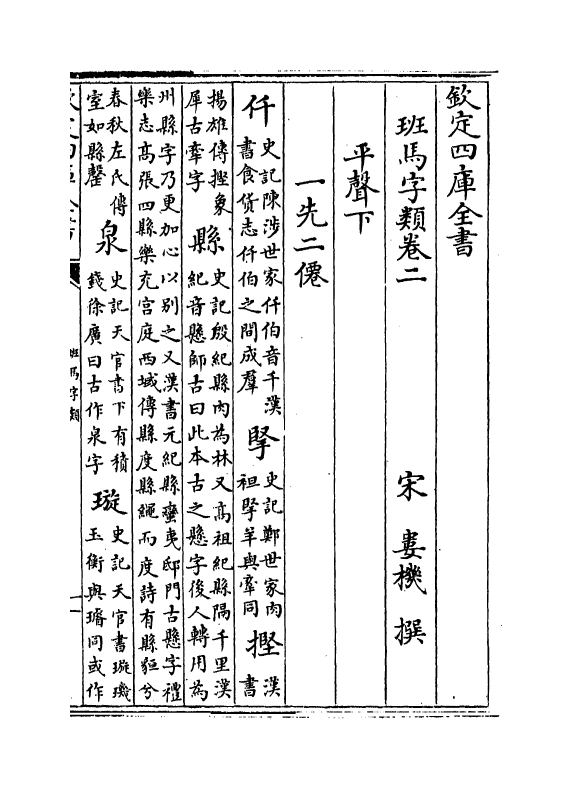 欽定四庫全書
班馬字類卷二　宋　婁機　撰
平聲下
一先二僊
仟
史記陳涉世家仟伯音千漢
書食貨志仟伯之間成羣
掔
史記鄭世家肉
袒掔羊與牽同
摼
漢
書
揚雄傳摼象
犀古牽字
縣
史記殷紀縣肉為林又髙祖紀縣隔千里漢
紀音懸師古曰此本古之懸字後人轉用為
州縣字乃更加心以别之又漢書元紀縣蠻夷邸門古懸字禮
樂志髙張四縣樂充宫庭西域傳縣度縣繩而度詩有縣貆兮
春秋左氏傳
室如縣罄
泉
史記天官書下有積
錢徐廣曰古作泉字
璇
史記天官書璇璣
玉衡與璿同或作
班馬字類
一